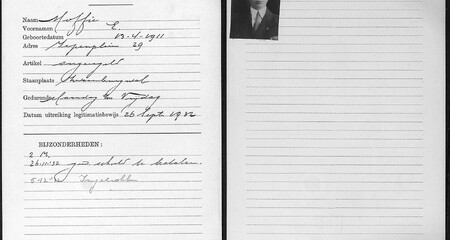 Naam Moffie
Voornamen E.
Geboortedatum 13-4-1911
Adres Iepenplein 29
Artikel
Staanplaats
Gedurende Maandag t/m Vrijdag
Datum uitreiking legitimatiebewijs 26 Sept. 1932
BIJZONDERHEDEN:
2 M.
26.11.'32 schuld te betalen.
5-12-'32 Ingetrokken